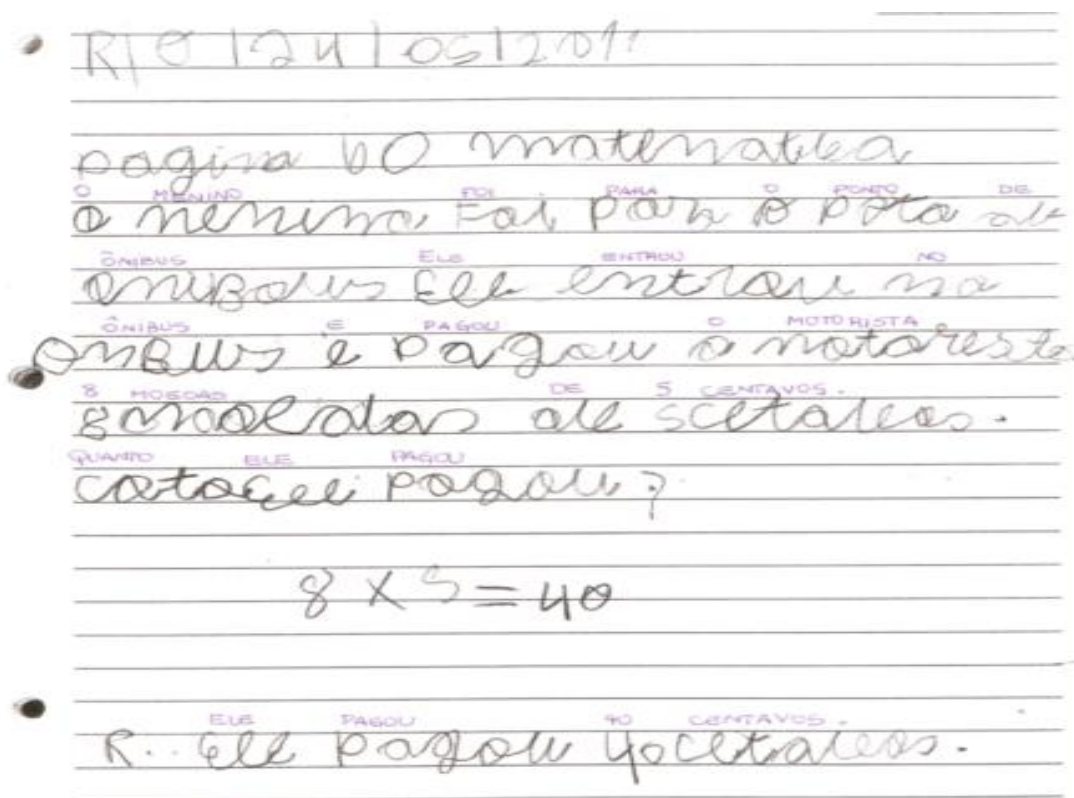 RIO 124105/2011
pagina 60 matematica
O MENINO FOI PARA O PONTO DE
o menino Foi para o poto de
ÔNIBUS ELE ENTROU NO
oniBous Ele entrou no
ÔNIBUS E PAGOU O MOTORISTA
onBuus e pagou o motoreste
8 MOEDAS DE 5 CENTAVOS.
8 moeldas de 5 cetaveos.
QUANTO ELE PAGOU
catoEle pagou?
8 X 5 = 40
ELE PAGOU 40 CENTAVOS.
R. Ele pagou 40 cetaveos.